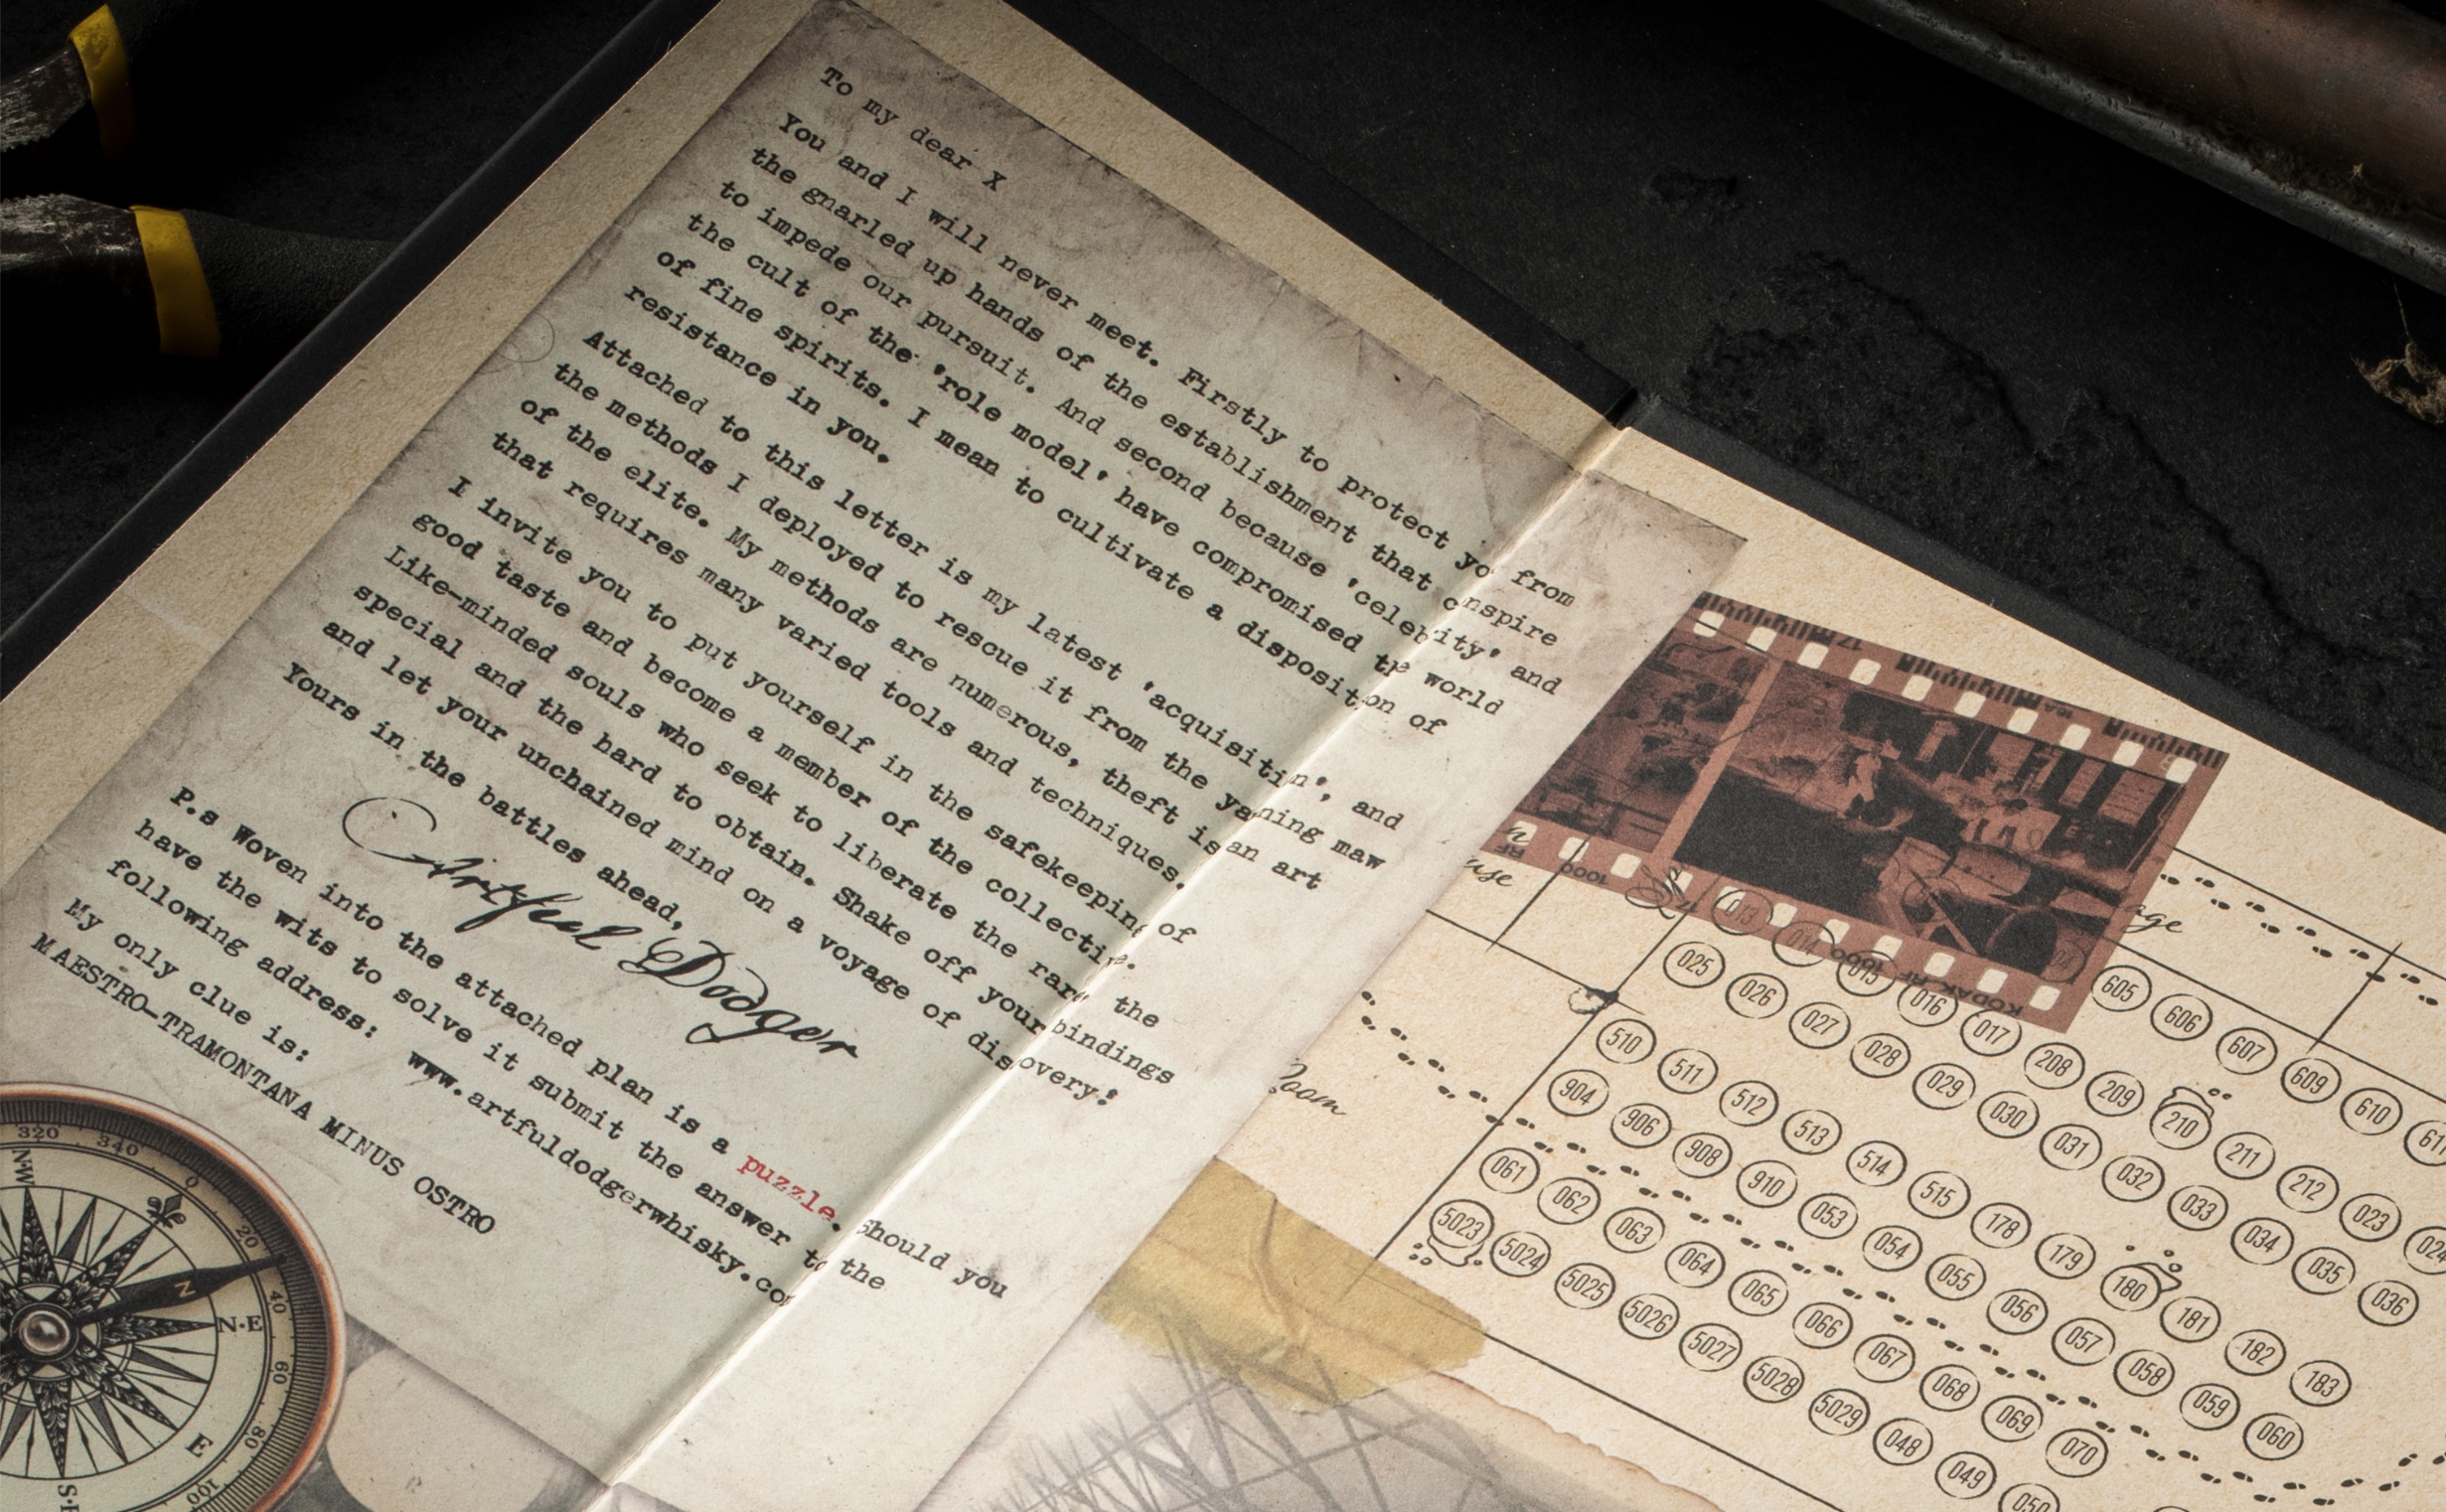 To my dear X
You and I will never meet. Firstly to protect yo from
the gnarled up hands of the establishment that c nspire
to impede our pursuit. And second because 'celebrity' and
the cult of the 'role model' have compromised the world
of fine spirits. I mean to cultivate a disposition of
resistance in you.
Attached to this letter is my latest 'acquisition', and
the methods I deployed to rescue it from the yawning maw
of the elite. My methods are numerous, theft is an art
that requires many varied tools and techniques.
I invite you to put yourself in the safekeeping of
good taste and become a member of the collective.
Like-minded souls who seek to liberate the rare the
special and the hard to obtain. Shake off your bindings
and let your unchained mind on a voyage of discovery!
Yours in the battles ahead,
Artful Dodger
P.s Woven into the attached plan is a puzzle. Should you
have the wits to solve it submit the answer to the
following address: www.artfuldodgerwhisky.co
My only clue is:
MAESTRO-TRAMONTANA MINUS OSTRO
320 340 0 20 40 60 80 100
NW N N·E E S
17
1000
KODAK RF 1000
use
age
Room
013 014 015 016 017 208 209 210 211 212 023 024
605 606 607 609 610 611
025 026 027 028 029 030 031 032 033 034 035 036
510 511 512 513 514 515 178 179 180 181 182 183
904 906 908 910 053 054 055 056 057 058 059 060
061 062 063 064 065 066 067 068 069 070
5023 5024 5025 5026 5027 5028 5029 048 049 050